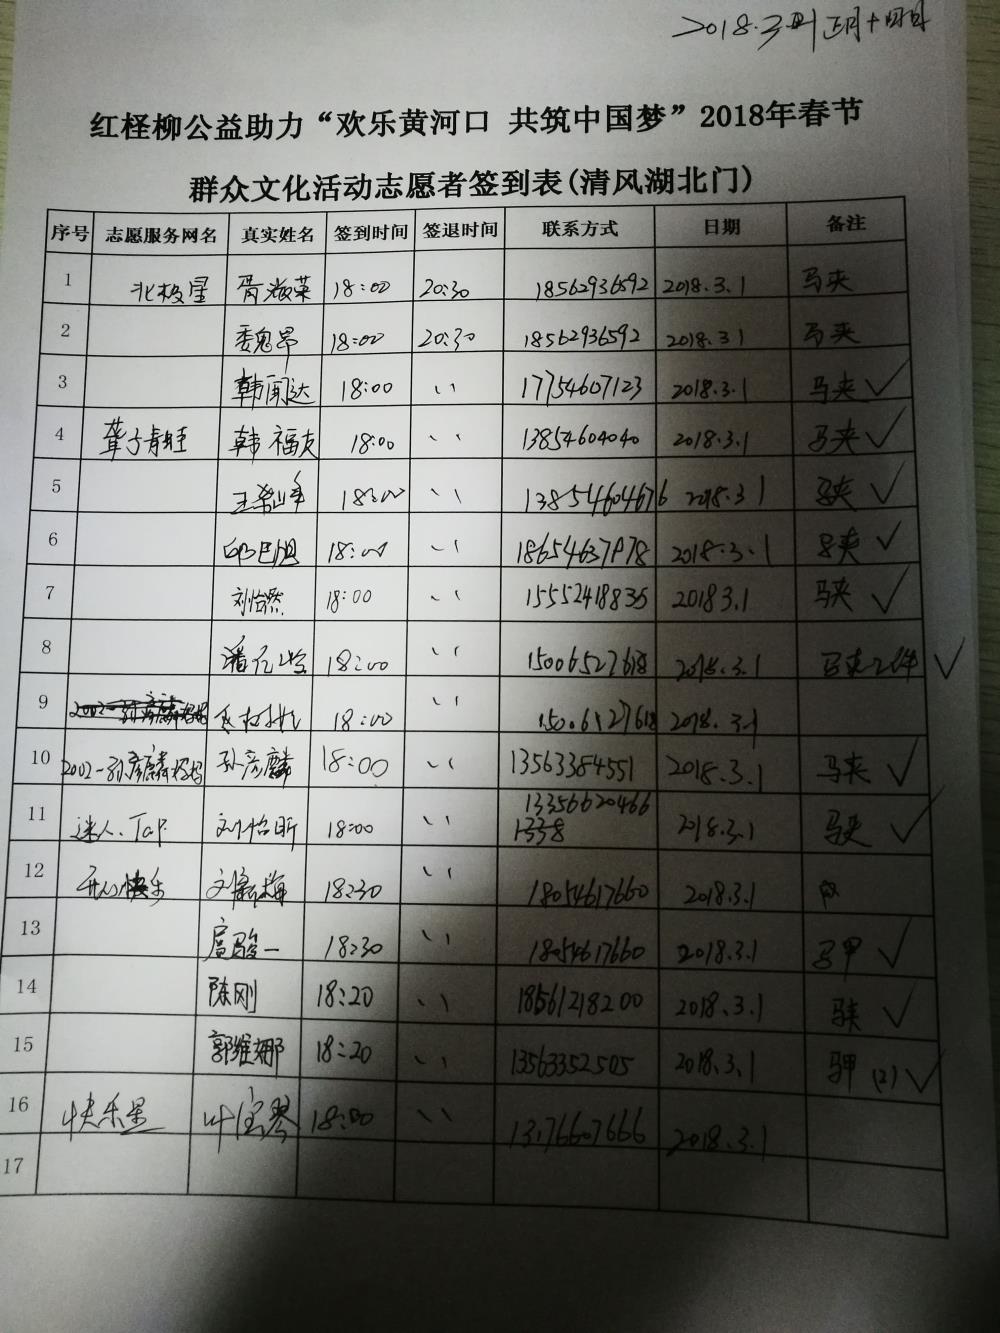 2018.3.1 正月十四日
红柽柳公益助力“欢乐黄河口 共筑中国梦”2018年春节
群众文化活动志愿者签到表(清风湖北门)
序号 志愿服务网名 真实姓名 签到时间 签退时间 联系方式 日期 备注
1 北极星 胥淑荣 18:00 20:30 18562936592 2018.3.1 马夹
2 18:00 20:30 18562936592 2018.3.1 马夹
3 韩闻达 18:00 〃 17754607123 2018.3.1 马夹 ✓
4 聋子青蛙 韩福友 18:00 〃 13854604040 2018.3.1 马夹 ✓
5 18:00 〃 13854604676 2018.3.1 马夹 ✓
6 18:00 〃 18654637978 2018.3.1 马夹 ✓
7 刘怡然 18:00 〃 15552418835 2018.3.1 马夹 ✓
8 18:00 〃 15006527618 2018.3.1 马夹2件 ✓
9 18:00 〃 15006527618 2018.3.1
10 2002-孙彦麟妈妈 孙彦麟 18:00 〃 13563384551 2018.3.1 马夹 ✓
11 迷人.Tar 刘怡昕 18:00 〃 13356620466 2018.3.1 马夹 ✓
12 开心快乐 18:30 〃 18054617660 2018.3.1
13 18:30 〃 18054617660 2018.3.1 马甲 ✓
14 陈刚 18:20 〃 18561218200 2018.3.1 马夹 ✓
15 郭维娜 18:20 〃 13563352505 2018.3.1 马甲 (2) ✓
16 快乐星 叶宝琴 18:00 〃 13176607666 2018.3.1
17